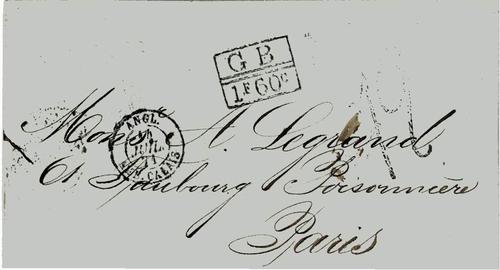 G B
1F60c
ANGL.
JUIL.
71
CALAIS
Monsr A. Legrand
61 Faubourg Poisonnière
Paris